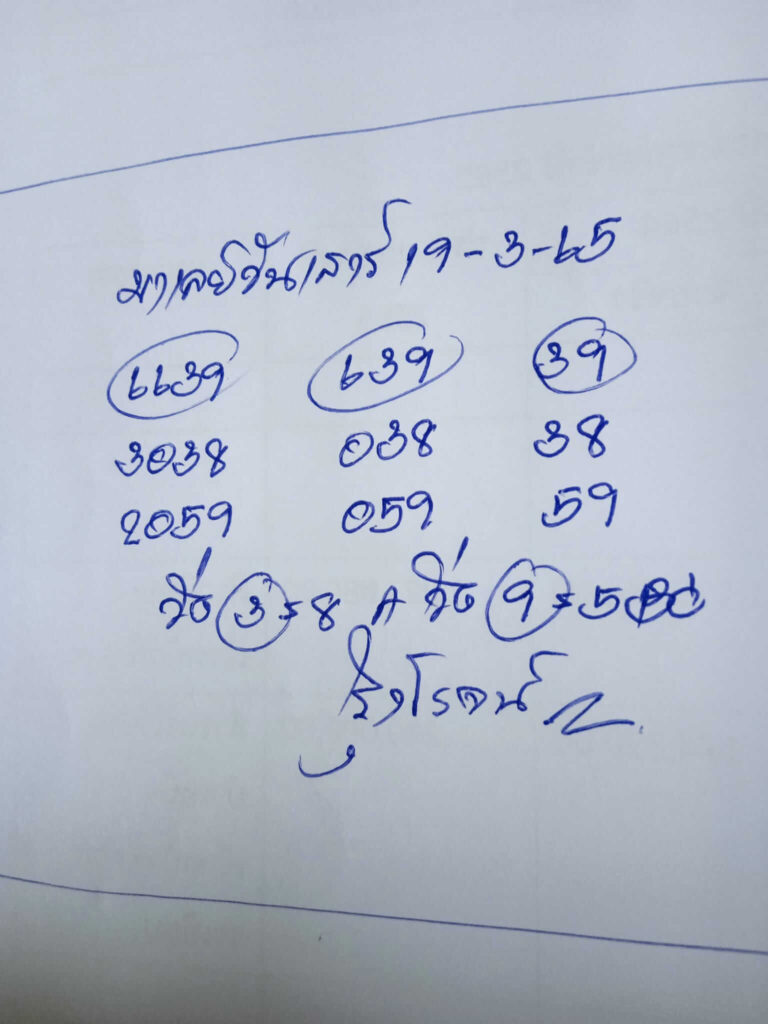 มาเลย์วันเสาร์ 19-3-65
6639 639 39
3038 038 38
2059 059 59
วิ่ง 3=8 A วิ่ง 9=5
รุ่งโรจน์